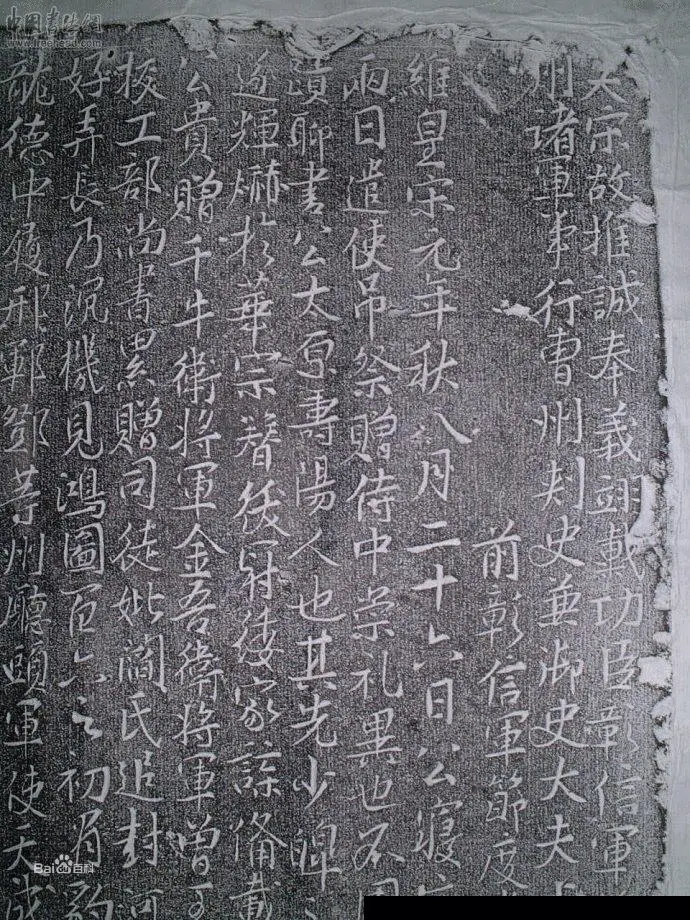 大宋故推誠奉義翊戴功臣彰信軍
州諸軍事行曹州刺史兼御史大夫上
前彰信軍節度
維皇宋元年秋八月二十六日公寢
兩日遣使吊祭贈侍中崇礼異也不
聊書公太原壽陽人也其先少
遂輝赫於華宗簪紱冠緌家諜備載
公貴贈千牛衛將軍金吾衛將軍曾
校工部尚書累贈司徒妣閻氏追封河
好弄長乃沉機見鴻圖 之初
龍德中履邢鄆鄧等州廳頭軍使天成
中国书法网
www.freehead.com
Baidu百科